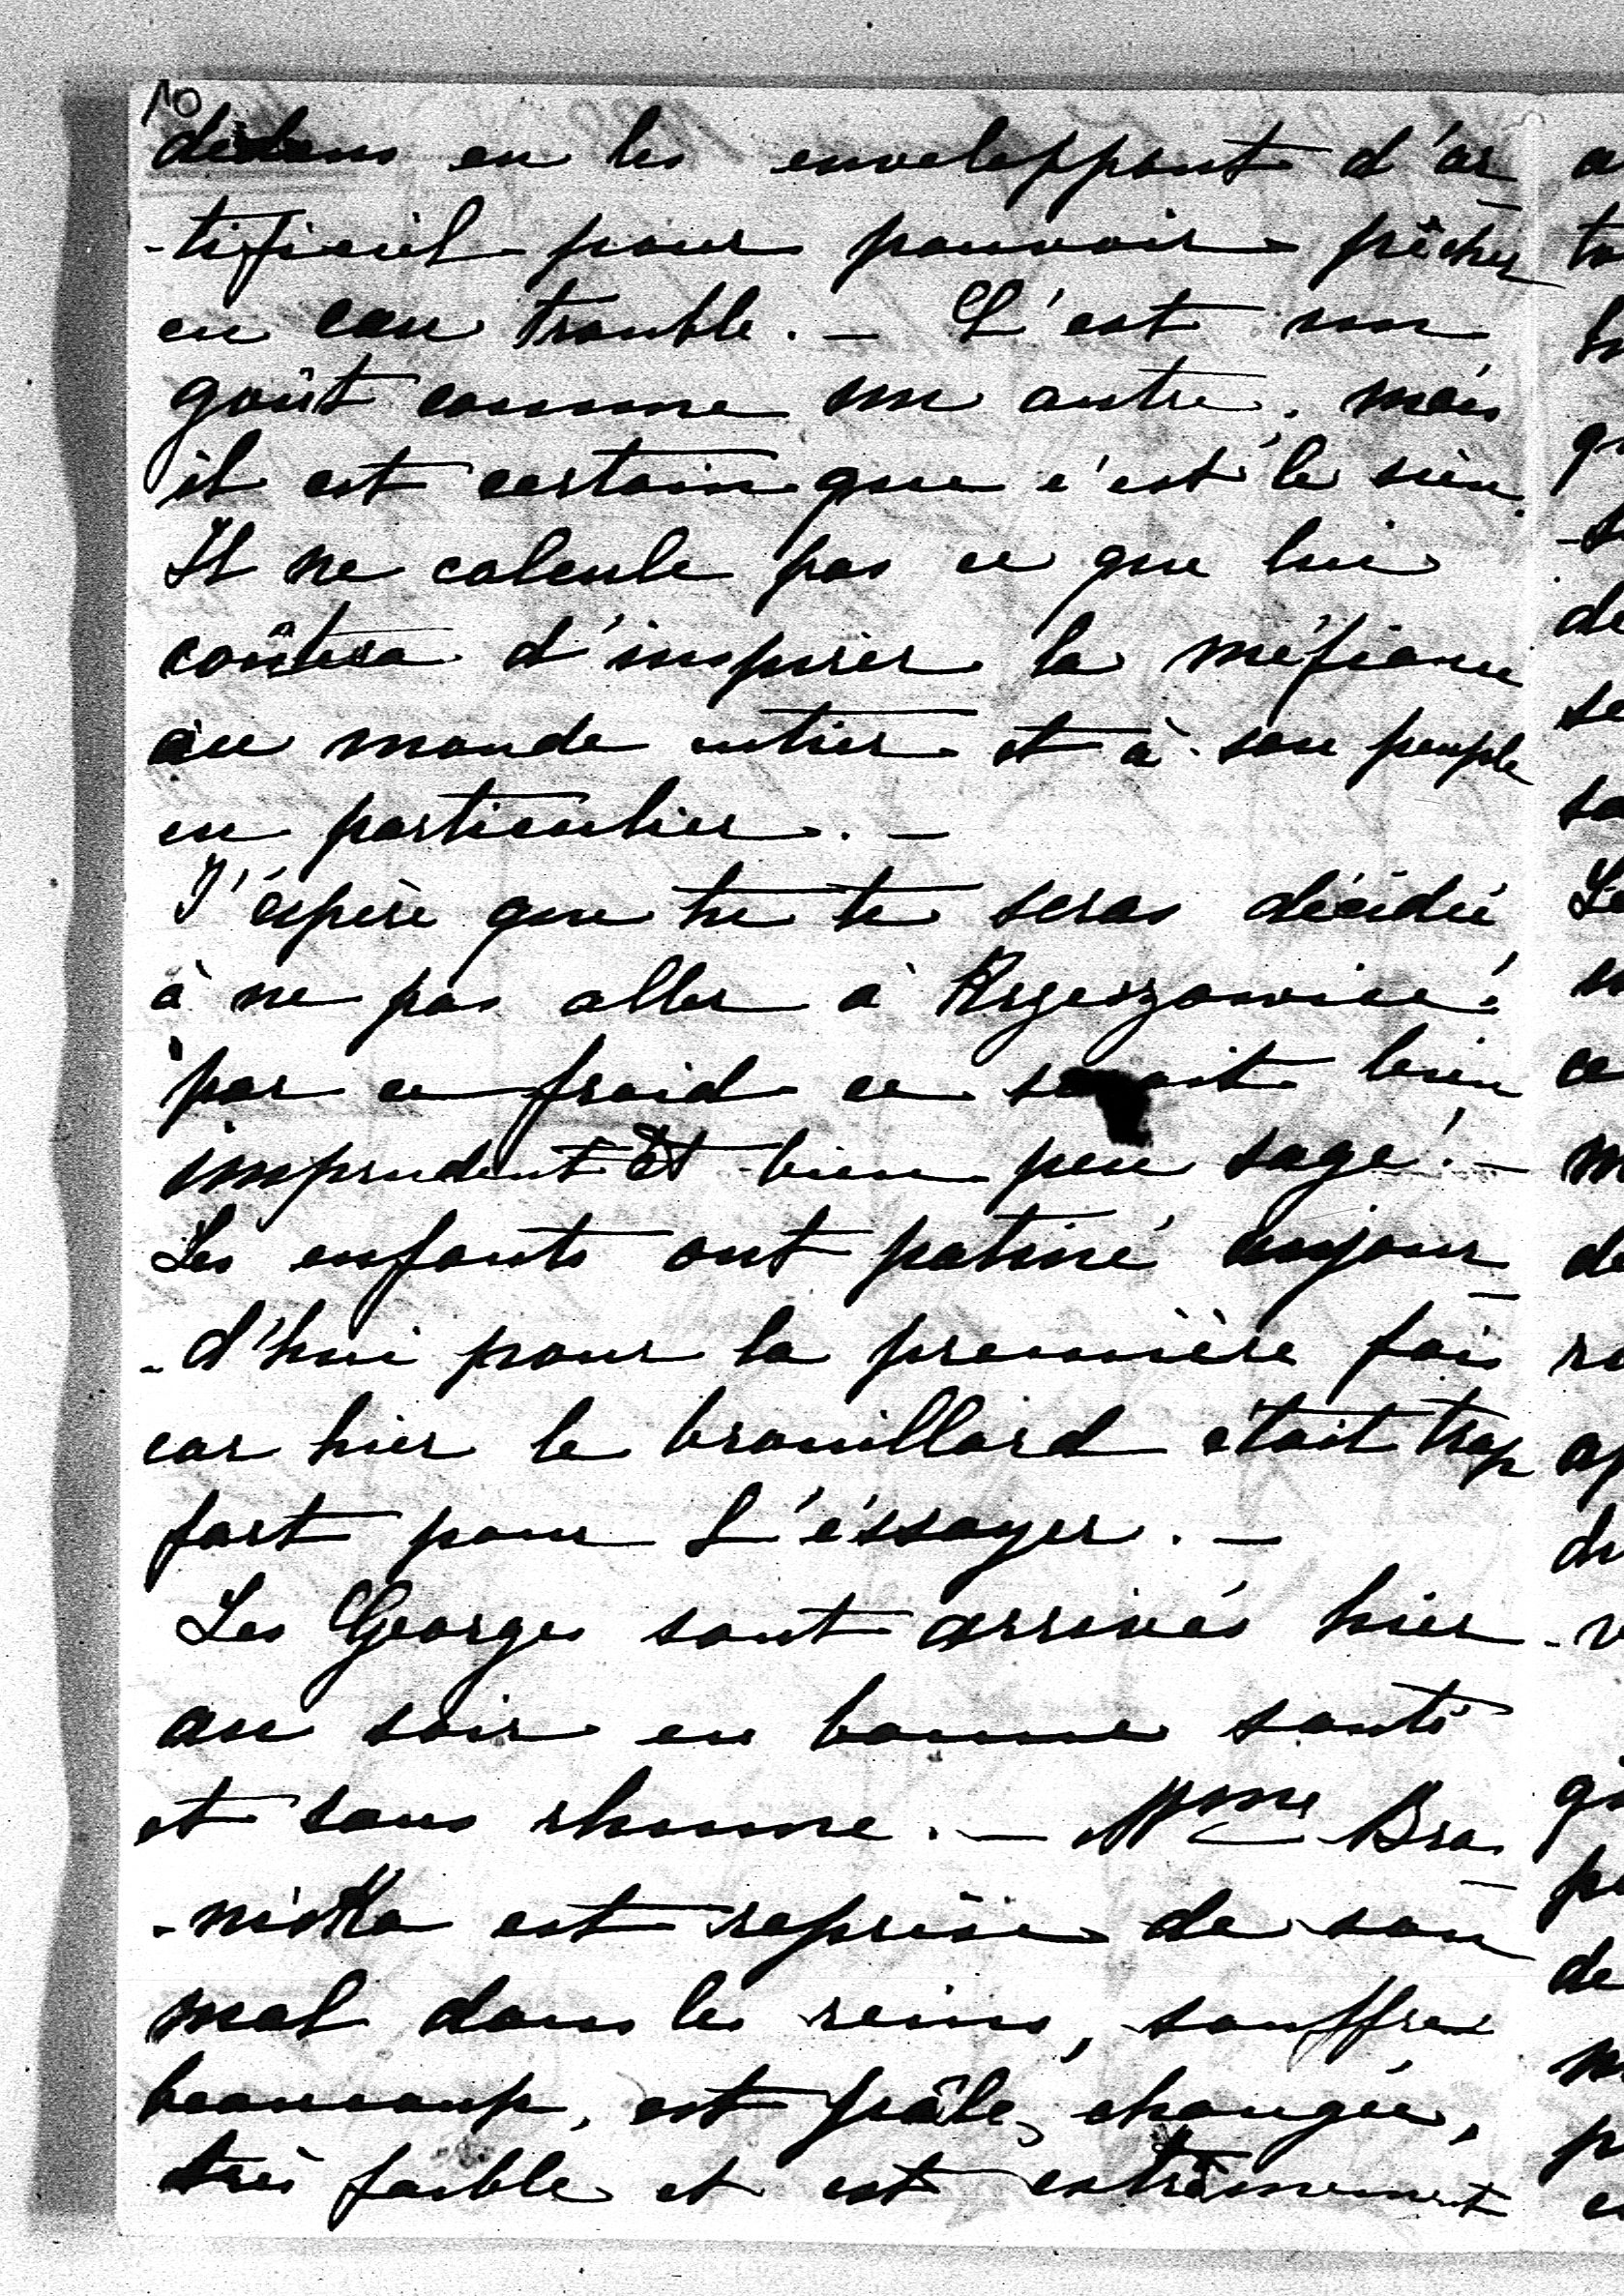 10
dedans en les enveloppant d'ar
-tificiel pour pouvoir pêcher
en eau trouble. — C'est un
goût comme un autre. mais
il est certain que c'est le sien.
Il ne calcule pas ce que lui
coûtera d'inspirer la méfiance
au monde entier et à son peuple
en particulier. —
J'éspère que tu te seras décidée
à ne pas aller à
par ce froid ce serait bien
imprudent et bien peu sage! —
Les enfants ont patiné aujour
-d'hui pour la première fois
car hier le brouillard était trop
fort pour l'éssayer. —
Les Georges sont arrivés hier
au soir en bonne santé
et sans rhume. — Mme Bra
-nicka est reprise de son
mal dans les reins, souffre
beaucoup, est pâle, changée,
très faible et est extrêmement